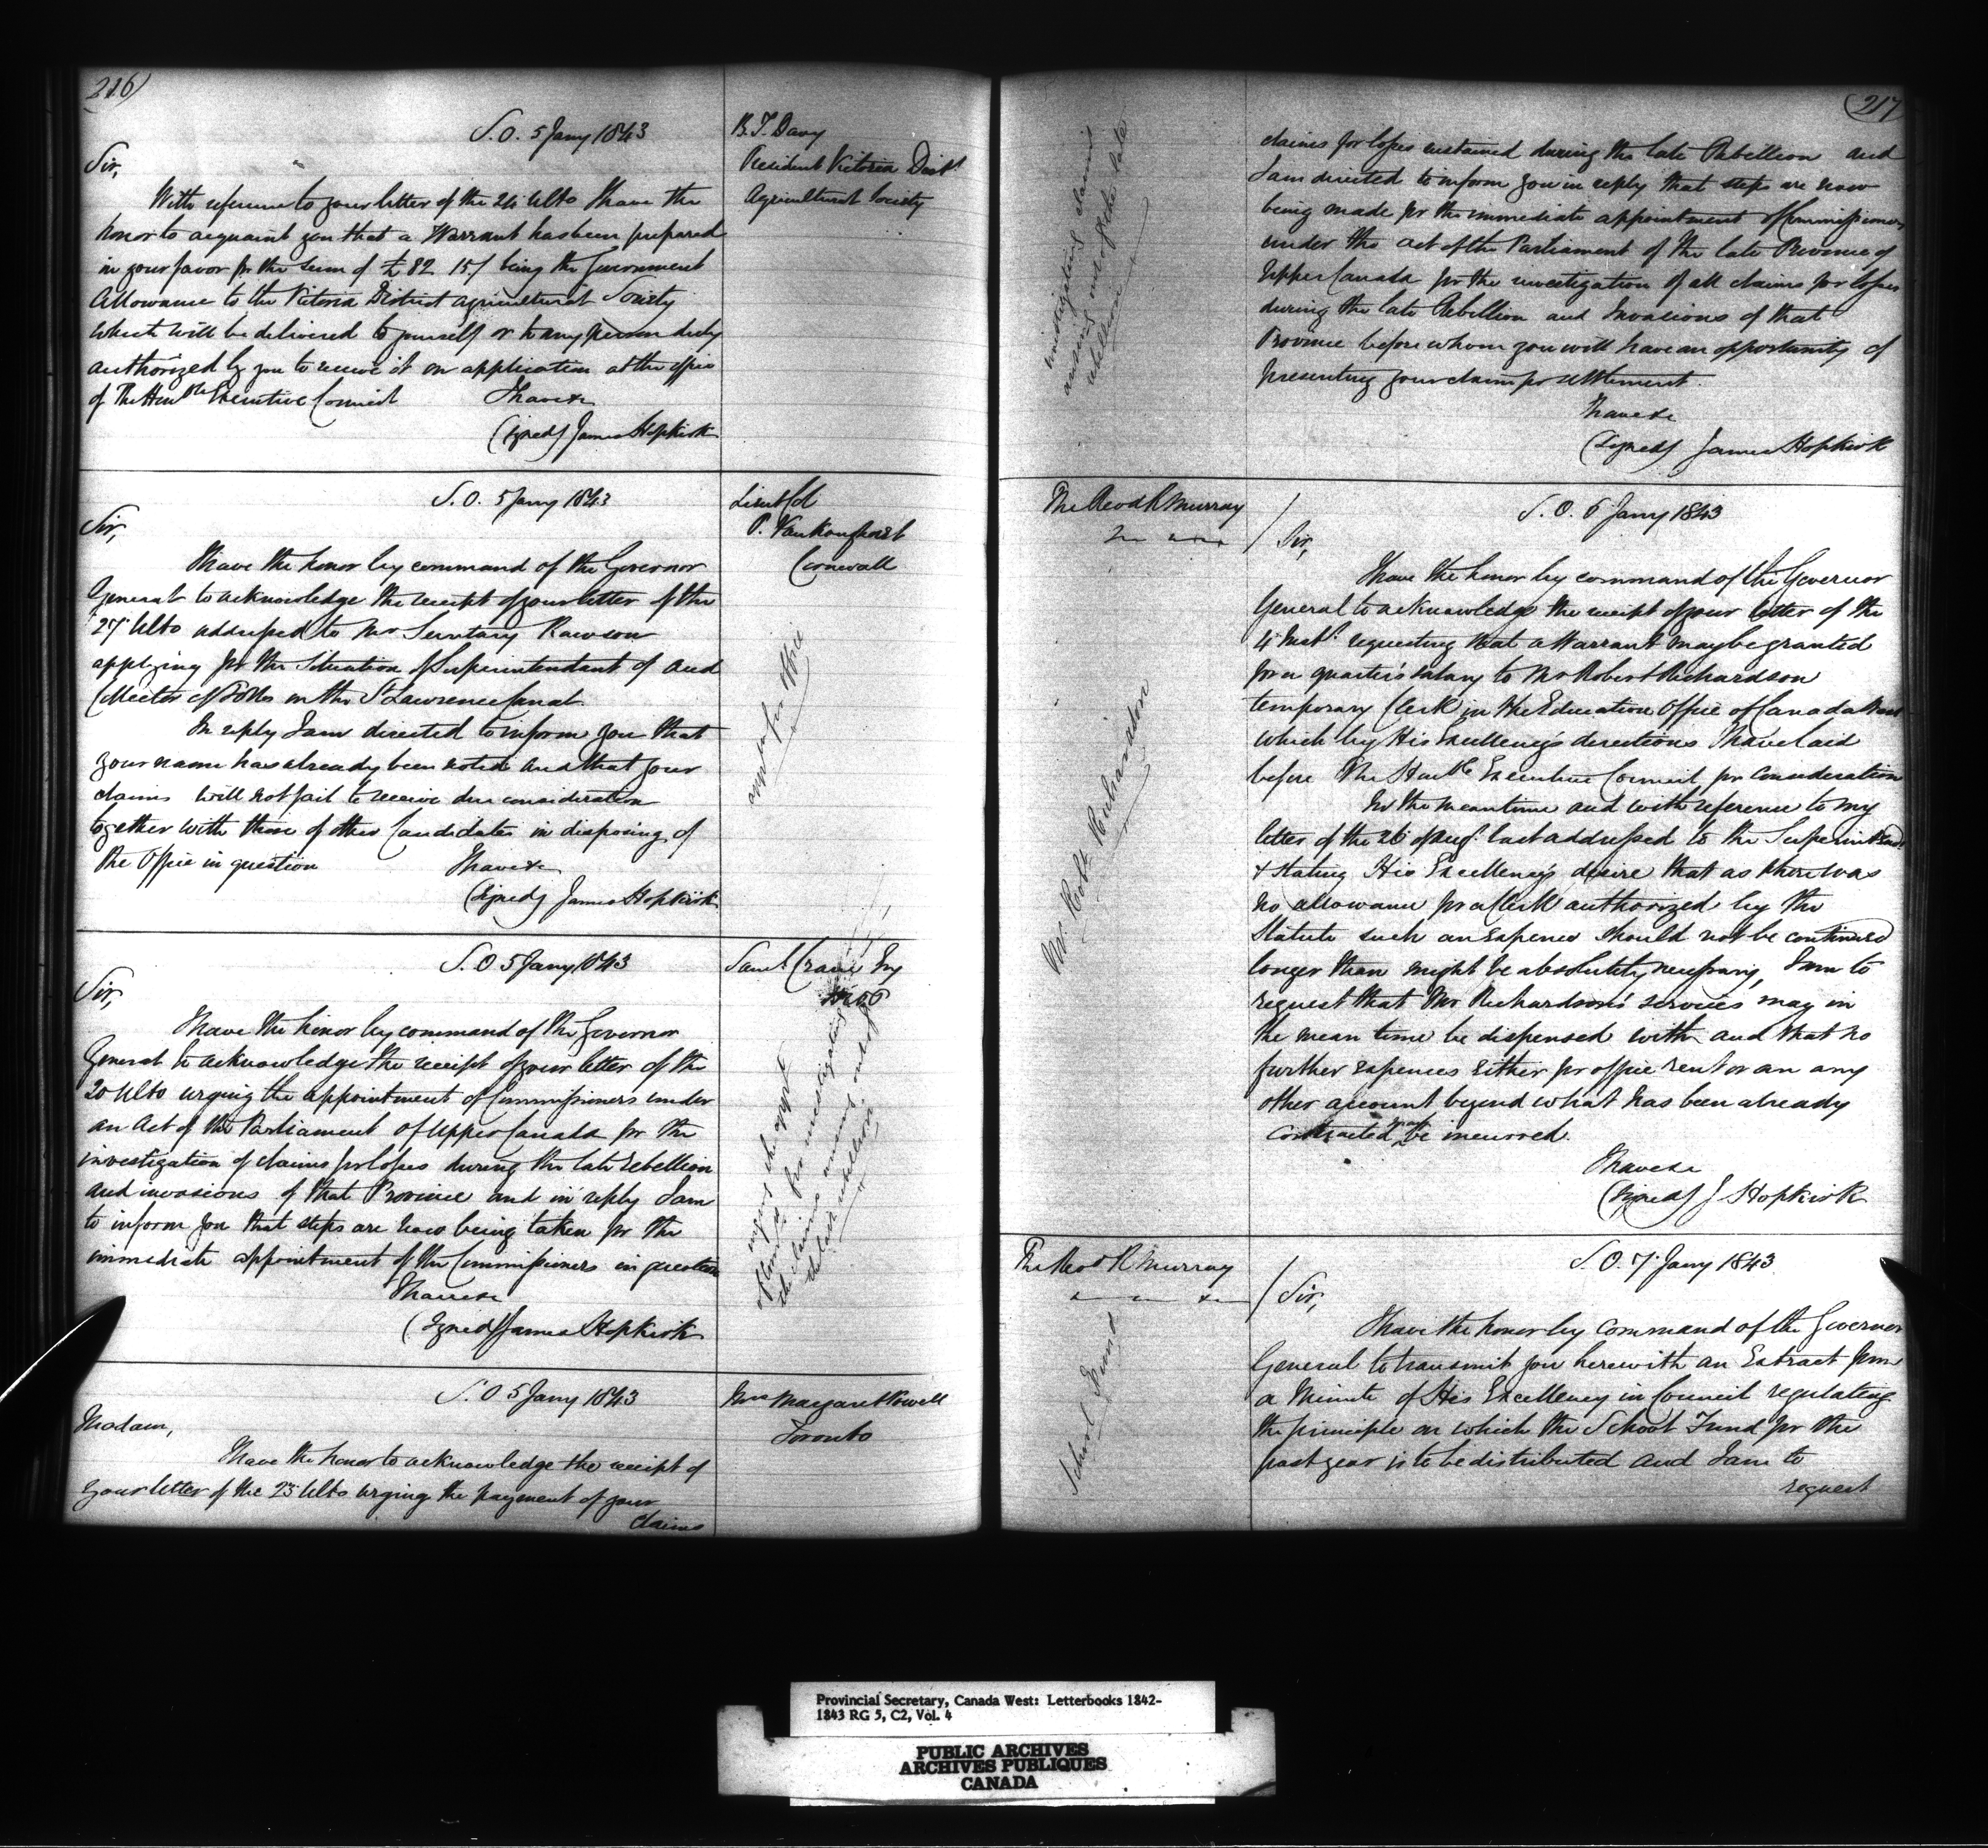 216)
S. O. 5 Jany 1843
B. T. Davy
President Victoria Dist.
Agricultural Society
Sir,
With reference to your letter of the 24 Ulto I have the
honor to acquaint you that a Warrant has been prepared
in your favor for the sum of £82 15/ being the Government
Allowance to the Victoria District Agricultural Society
which will be delivered to yourself or to any person duly
authorized by you to receive it on application at the office
of The Honble Executive Council I have &c
(Signed) James Hopkirk
S. O. 5 Jany 1843
Lieut Col
P. Vankoughnet
Cornwall
appt for office
Sir,
I have the honor by command of the Governor
General to acknowledge the receipt of your letter of the
27 Ulto addressed to Mr Secretary Rawson
applying for the Situation of Superintendant of and
Collector of Tolls on the St Lawrence Canal
In reply I am directed to inform you that
your name has already been noted and that your
claims will not fail to receive due consideration
together with those of other Candidates in disposing of
the Office in question I have &c
(Signed) James Hopkirk
S. O 5 Jany 1843
Saml. Crane Esq
urging the appt
of Comrs for investigating
the claims arising out of
the late rebellion
Sir,
I have the honor by command of the Governor
General to acknowledge the receipt of your letter of the
20 Ulto urging the appointment of Commissioners under
an Act of the Parliament of Upper Canada for the
investigation of claims for losses during the late rebellion
and invasions of that Province and in reply I am
to inform you that steps are now being taken for the
immediate appointment of the Commissioners in question
I have &c
(Signed) James Hopkirk
S. O 5 Jany 1843
Mrs Margaret Powell
Toronto
Madam,
I have the honor to acknowledge the receipt of
your letter of the 23 Ulto urging the payment of your
claims
(217
investigating claims
arising out of the late
rebellion
claims for losses sustained during the late Rebellion and
I am directed to inform you in reply that steps are now
being made for the immediate appointment of Commissioners
under the act of the Parliament of the late Province of
Upper Canada for the investigation of all claims for losses
during the late Rebellion and Invasions of that
Province before whom you will have an opportunity of
presenting your claim for settlement.
I have &c
(Signed) James Hopkirk
The Revd R Murray
Mr. Robt Richardson
S. O. 6 Jany 1843
Sir,
I have the honor by command of the Governor
General to acknowledge the receipt of your letter of the
4 Inst. requesting that a Warrant may be granted
for a quarter's salary to Mr Robert Richardson
temporary Clerk in the Education Office of Canada West
which by His Excellency's directions I have laid
before The Honble Executive Council for consideration
In the meantime and with reference to my
letter of the 26 of Augt. last addressed to the Superintendt
& stating His Excellency's desire that as there was
no allowance for a Clerk authorized by the
Statute such an expence should not be continued
longer than might be absolutely necessary, I am to
request that Mr Richardson's services may in
the mean time be dispensed with and that no
further expences either for office rent or an any
other account beyond what has been already
contracted may be incurred.
I have &c
(Signed) J Hopkirk
The Revd R Murray
School Fund
S. O. 7 Jany 1843
Sir,
I have the honor by Command of the Governor
General to transmit you herewith an Extract from
a Minute of His Excellency in Council regulating
the principle on which the School Fund for the
past year is to be distributed and I am to
request
Provincial Secretary, Canada West: Letterbooks 1842-
1843 RG 5, C2, Vol. 4
PUBLIC ARCHIVES
ARCHIVES PUBLIQUES
CANADA